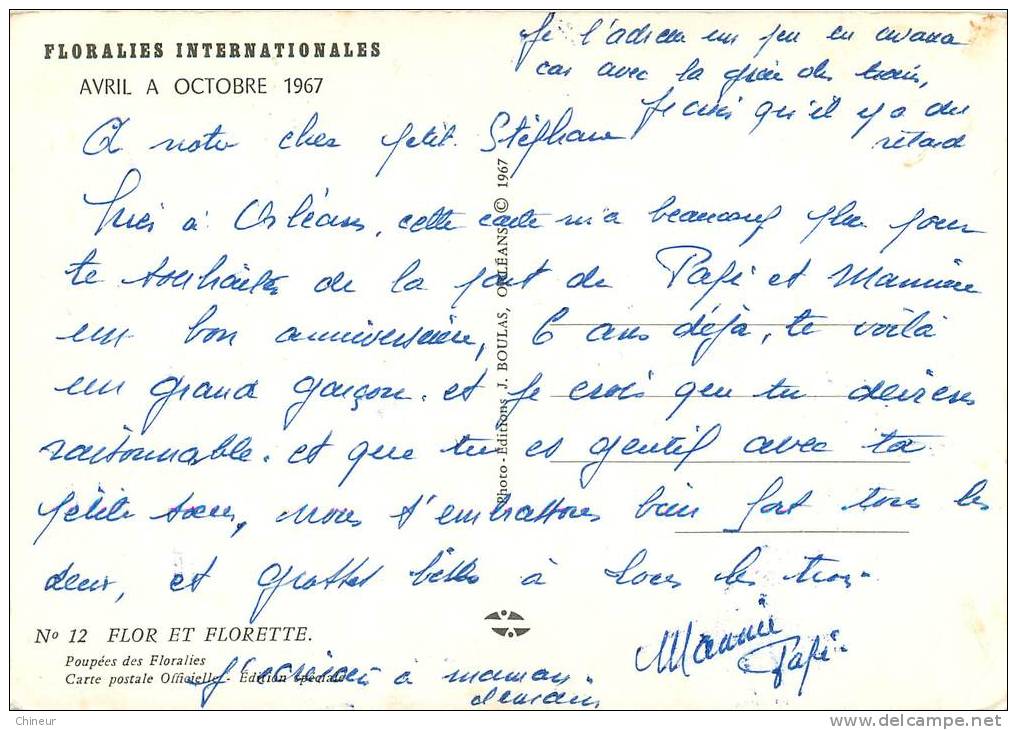 FLORALIES INTERNATIONALES
AVRIL A OCTOBRE 1967
Je l'adresse un peu en avance
car avec la grève des trains,
Je crois qu'il y a du
retard
A notre cher petit Stéphane
à Orléans, cette carte m'a beaucoup plu pour
te souhaiter de la part de Papi et Mamie
un bon anniversaire, 6 ans déjà, te voilà
un grand garçon. et je crois que tu deviens
raisonnable. et que tu es gentil avec ta
petite soeur, nous t'embrassons bien fort tous les
deux, et grosses bises à tous les trois.
Mamie
Papi
Nº 12 FLOR ET FLORETTE.
Poupées des Floralies
Carte postale Officielle - Édition spéciale
J'écrirai à maman
demain
Photo-Éditions J. BOULAS, ORLÉANS © 1967
Chineur
delcampe.net